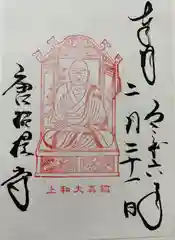 奉拝
二月二十一日
唐招提寺
鑑真大和上